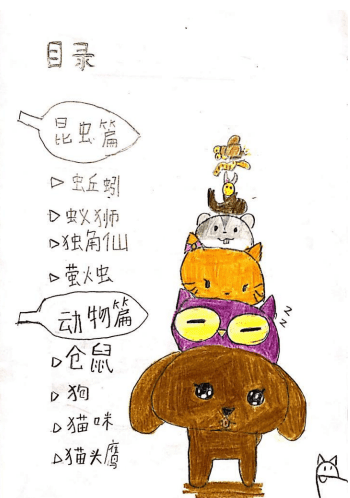 目录
昆虫篇
▷ 蚯蚓
▷ 蚁狮
▷ 独角仙
▷ 萤火虫
动物篇
▷ 仓鼠
▷ 狗
▷ 猫咪
▷ 猫头鹰
z
z